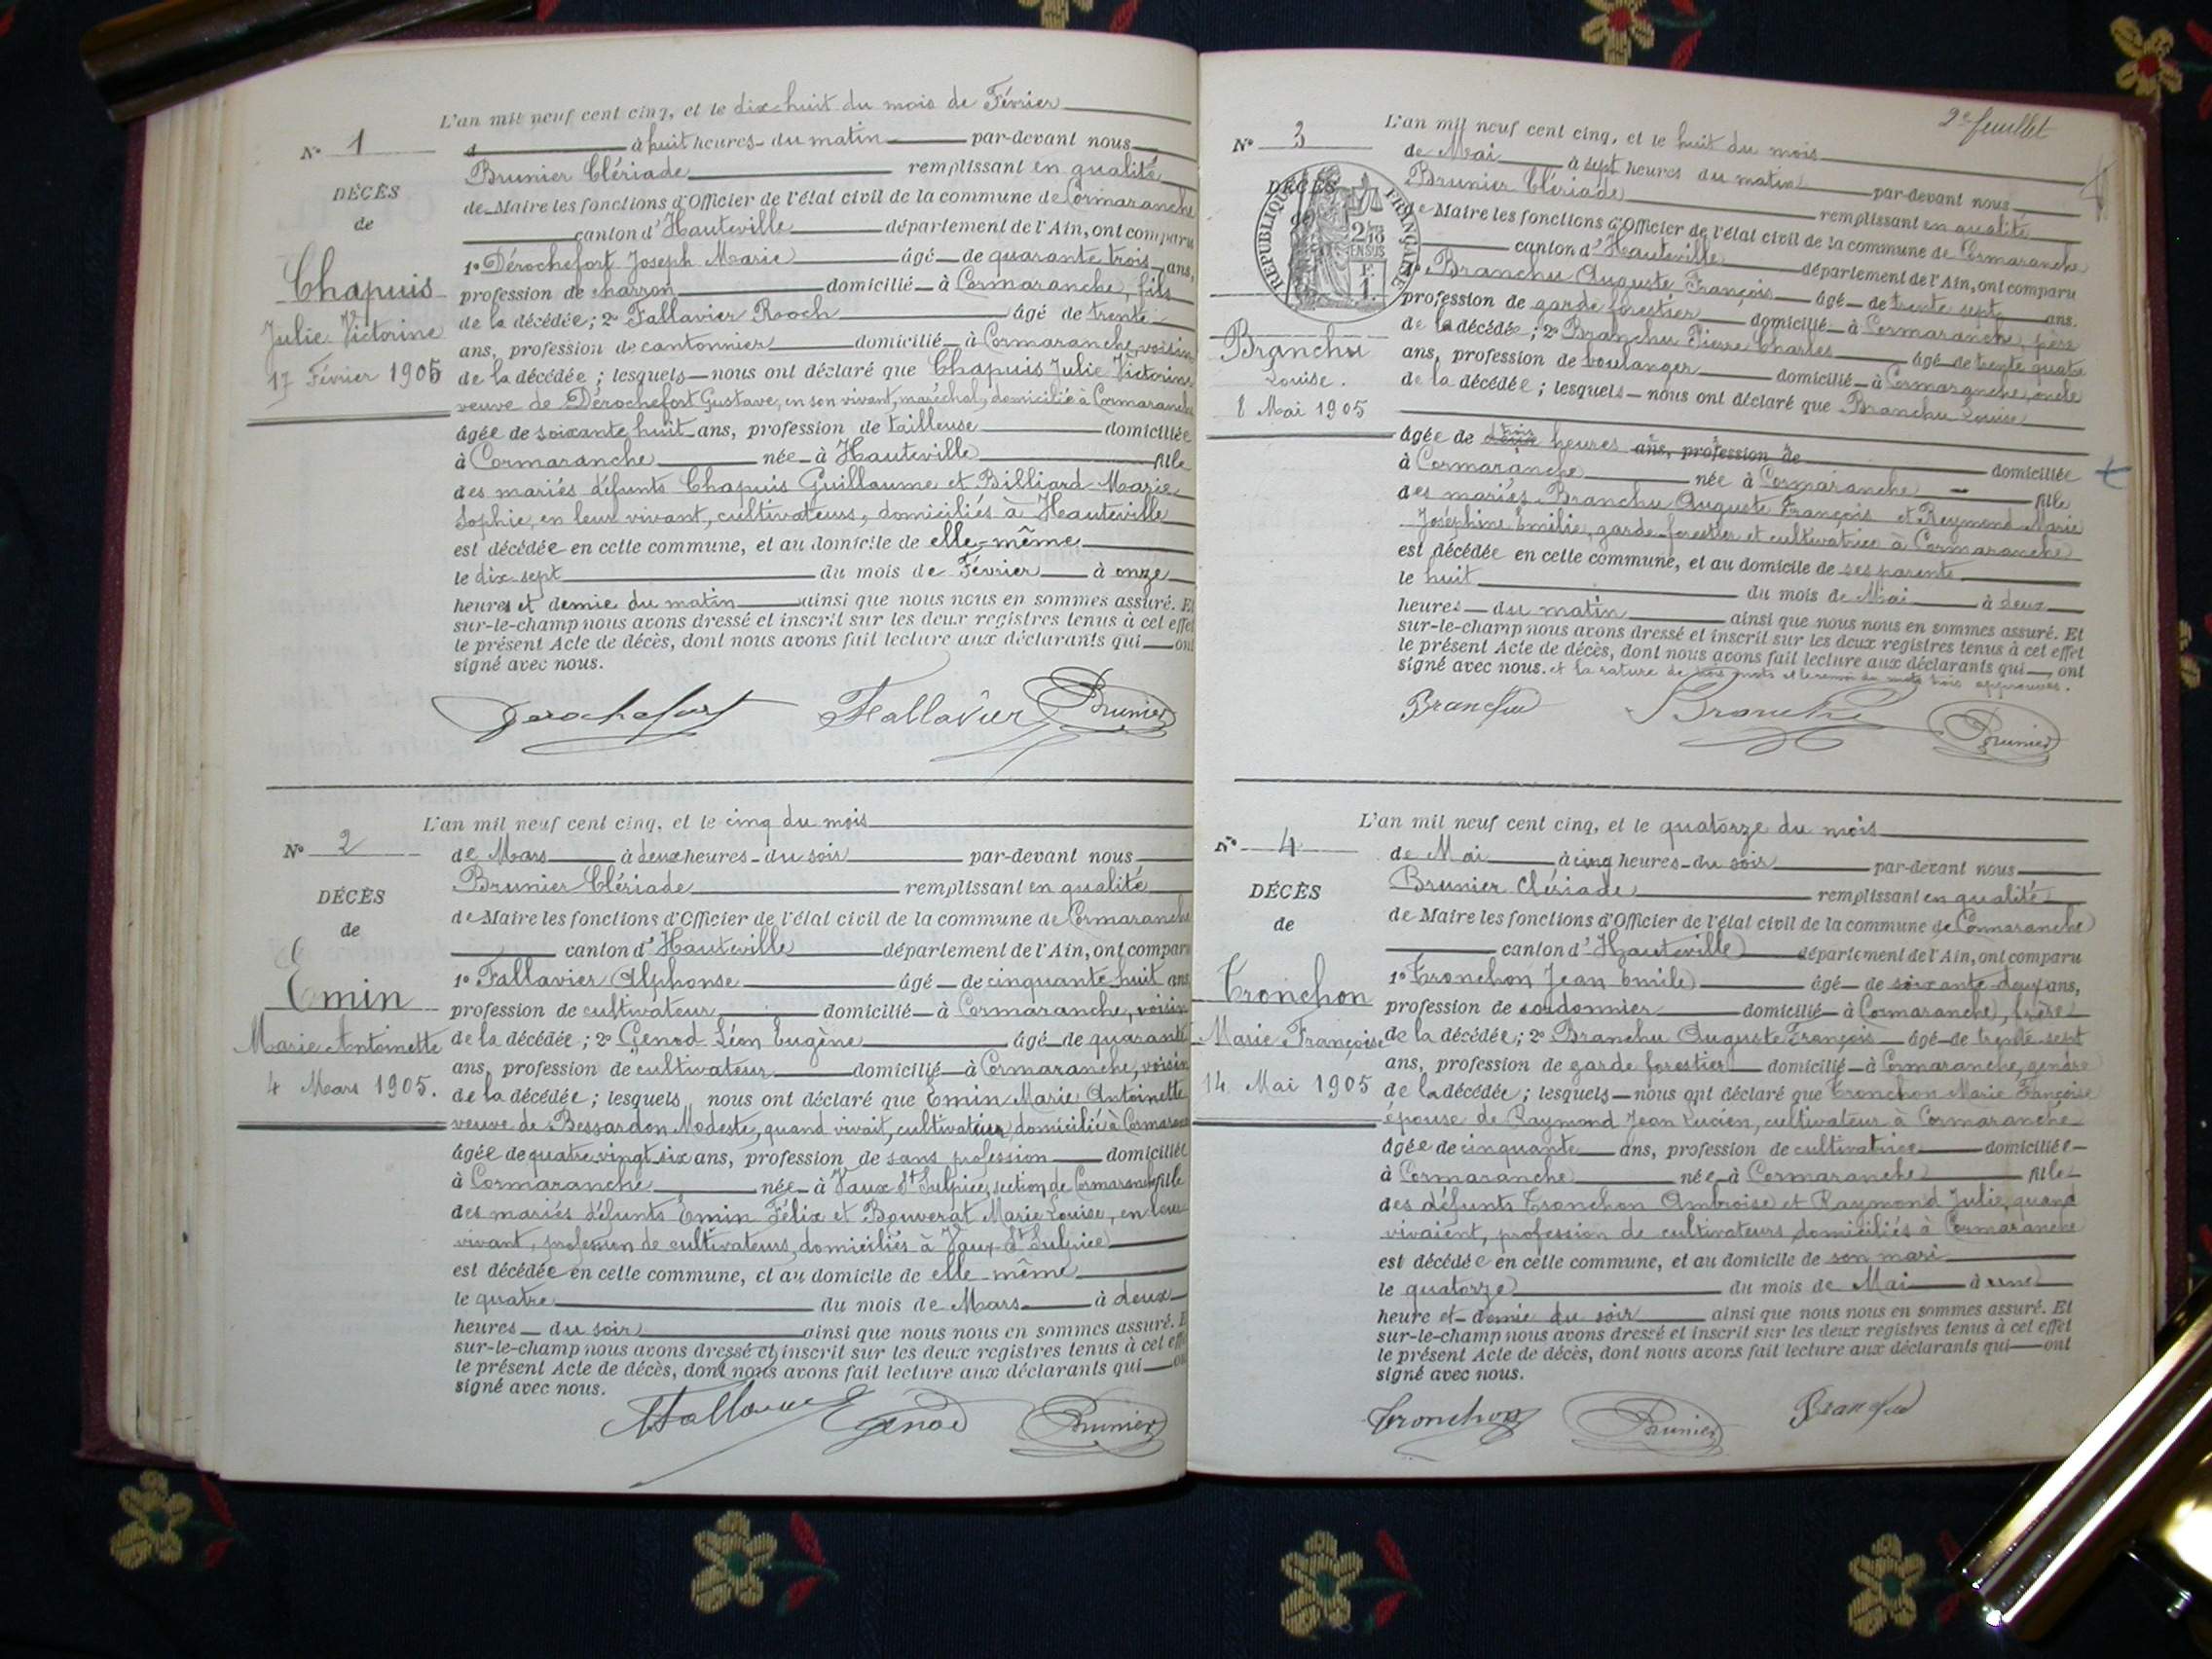 L'an mil neuf cent cinq, et le dix-huit du mois de Février
N° 1
à huit heures du matin par-devant nous
Brunier Clériade remplissant en qualité
DÉCÈS
de Maire les fonctions d'Officier de l'état civil de la commune de Cormaranche
de
canton d'Hauteville département de l'Ain, ont comparu
1° Dérochefort Joseph Marie âgé de quarante trois ans,
Chapuis
profession de charron domicilié à Cormaranche, fils
de la décédée; 2° Fallavier Roch âgé de trente
Julie Victorine
ans, profession de cantonnier domicilié à Cormaranche, voisin
17 Février 1905
de la décédée; lesquels nous ont déclaré que Chapuis Julie Victorine
veuve de Dérochefort Gustave, en son vivant, maréchal, domicilié à Cormaranche
âgée de soixante huit ans, profession de tailleuse domiciliée
à Cormaranche née à Hauteville fille
des mariés défunts Chapuis Guillaume et Billiard Marie
Sophie, en leur vivant, cultivateurs, domiciliés à Hauteville
est décédée en cette commune, et au domicile de elle-même
le dix sept du mois de Février à onze
heures et demie du matin ainsi que nous nous en sommes assuré. Et
sur-le-champ nous avons dressé et inscrit sur les deux registres tenus à cet effet
le présent Acte de décès, dont nous avons fait lecture aux déclarants qui ont
signé avec nous.
Derochefort Fallavier Brunier
L'an mil neuf cent cinq, et le cinq du mois
N° 2
de Mars à deux heures du soir par-devant nous
Brunier Clériade remplissant en qualité
DÉCÈS
de Maire les fonctions d'Officier de l'état civil de la commune de Cormaranche
de
canton d'Hauteville département de l'Ain, ont comparu
1° Fallavier Alphonse âgé de cinquante huit ans
Emin
profession de cultivateur domicilié à Cormaranche, voisin
Marie Antoinette
de la décédée; 2° Genod Léon Eugène âgé de quarante
ans, profession de cultivateur domicilié à Cormaranche, voisin
4 Mars 1905.
de la décédée; lesquels nous ont déclaré que Emin Marie Antoinette
veuve de Bessardon Modeste, quand vivait, cultivateur, domicilié à Cormaranche
âgée de quatre vingt six ans, profession de sans profession domiciliée
à Cormaranche née à Vaux St Sulpice, section de Cormaranche fille
des mariés défunts Emin Félix et Bouverat Marie Louise, en leur
vivant, profession de cultivateurs, domiciliés à Vaux-St Sulpice
est décédée en cette commune, et au domicile de elle même
le quatre du mois de Mars à deux
heures du soir ainsi que nous nous en sommes assuré. E
sur-le-champ nous avons dressé et inscrit sur les deux registres tenus à cet effet
le présent Acte de décès, dont nous avons fait lecture aux déclarants qui ont
signé avec nous.
Fallavier Genod Brunier
2e feuillet
L'an mil neuf cent cinq, et le huit du mois
N° 3
de Mai à sept heures du matin par-devant nous
Brunier Clériade remplissant en qualité
DÉCÈS
de
RÉPUBLIQUE FRANÇAISE
de Maire les fonctions d'Officier de l'état civil de la commune de Cormaranche
canton d'Hauteville département de l'Ain, ont comparu
1° Branchu Auguste François âgé de trente sept ans.
profession de garde forestier domicilié à Cormaranche, père
Branchu
de la décédée; 2° Branchu Pierre Charles âgé de trente quatre
Louise.
ans, profession de boulanger domicilié à Cormaranche, oncle
8 Mai 1905
de la décédée; lesquels nous ont déclaré que Branchu Louise
trois
âgée de deux heures ans, profession de domiciliée
à Cormaranche née à Cormaranche fille
des mariés Branchu Auguste François et Reymond Marie
Joséphine Emilie, garde-forestier et cultivatrice à Cormaranche
est décédée en cette commune, et au domicile de ses parents
le huit du mois de Mai à deux
heures du matin ainsi que nous nous en sommes assuré. Et
sur-le-champ nous avons dressé et inscrit sur les deux registres tenus à cet effet
le présent Acte de décès, dont nous avons fait lecture aux déclarants qui ont
signé avec nous. et la rature de mots et le renvoi du mots trois approuvés.
Branchu Branchu Brunier
L'an mil neuf cent cinq, et le quatorze du mois
N° 4
de Mai à cinq heures du soir par-devant nous
Brunier Clériade remplissant en qualité
DÉCÈS
de Maire les fonctions d'Officier de l'état civil de la commune de Cormaranche
de
canton d'Hauteville département de l'Ain, ont comparu
1° Tronchon Jean Emile âgé de soixante-deux ans,
Tronchon
profession de cordonnier domicilié à Cormaranche, frère
Marie Françoise
de la décédée; 2° Branchu Auguste François âgé de trente sept
ans, profession de garde forestier domicilié à Cormaranche, gendre
14 Mai 1905
de la décédée; lesquels nous ont déclaré que Tronchon Marie Françoise
épouse de Raymond Jean Lucien, cultivateur à Cormaranche
âgée de cinquante ans, profession de cultivatrice domiciliée
à Cormaranche née à Cormaranche fille
des défunts Tronchon Ambroise et Raymond Julie, quand
vivaient, profession de cultivateurs, domiciliés à Cormaranche
est décédée en cette commune, et au domicile de son mari
le quatorze du mois de Mai à une
heure et demie du soir ainsi que nous nous en sommes assuré. Et
sur-le-champ nous avons dressé et inscrit sur les deux registres tenus à cet effet
le présent Acte de décès, dont nous avons fait lecture aux déclarants qui ont
signé avec nous.
Tronchon Brunier Branchu